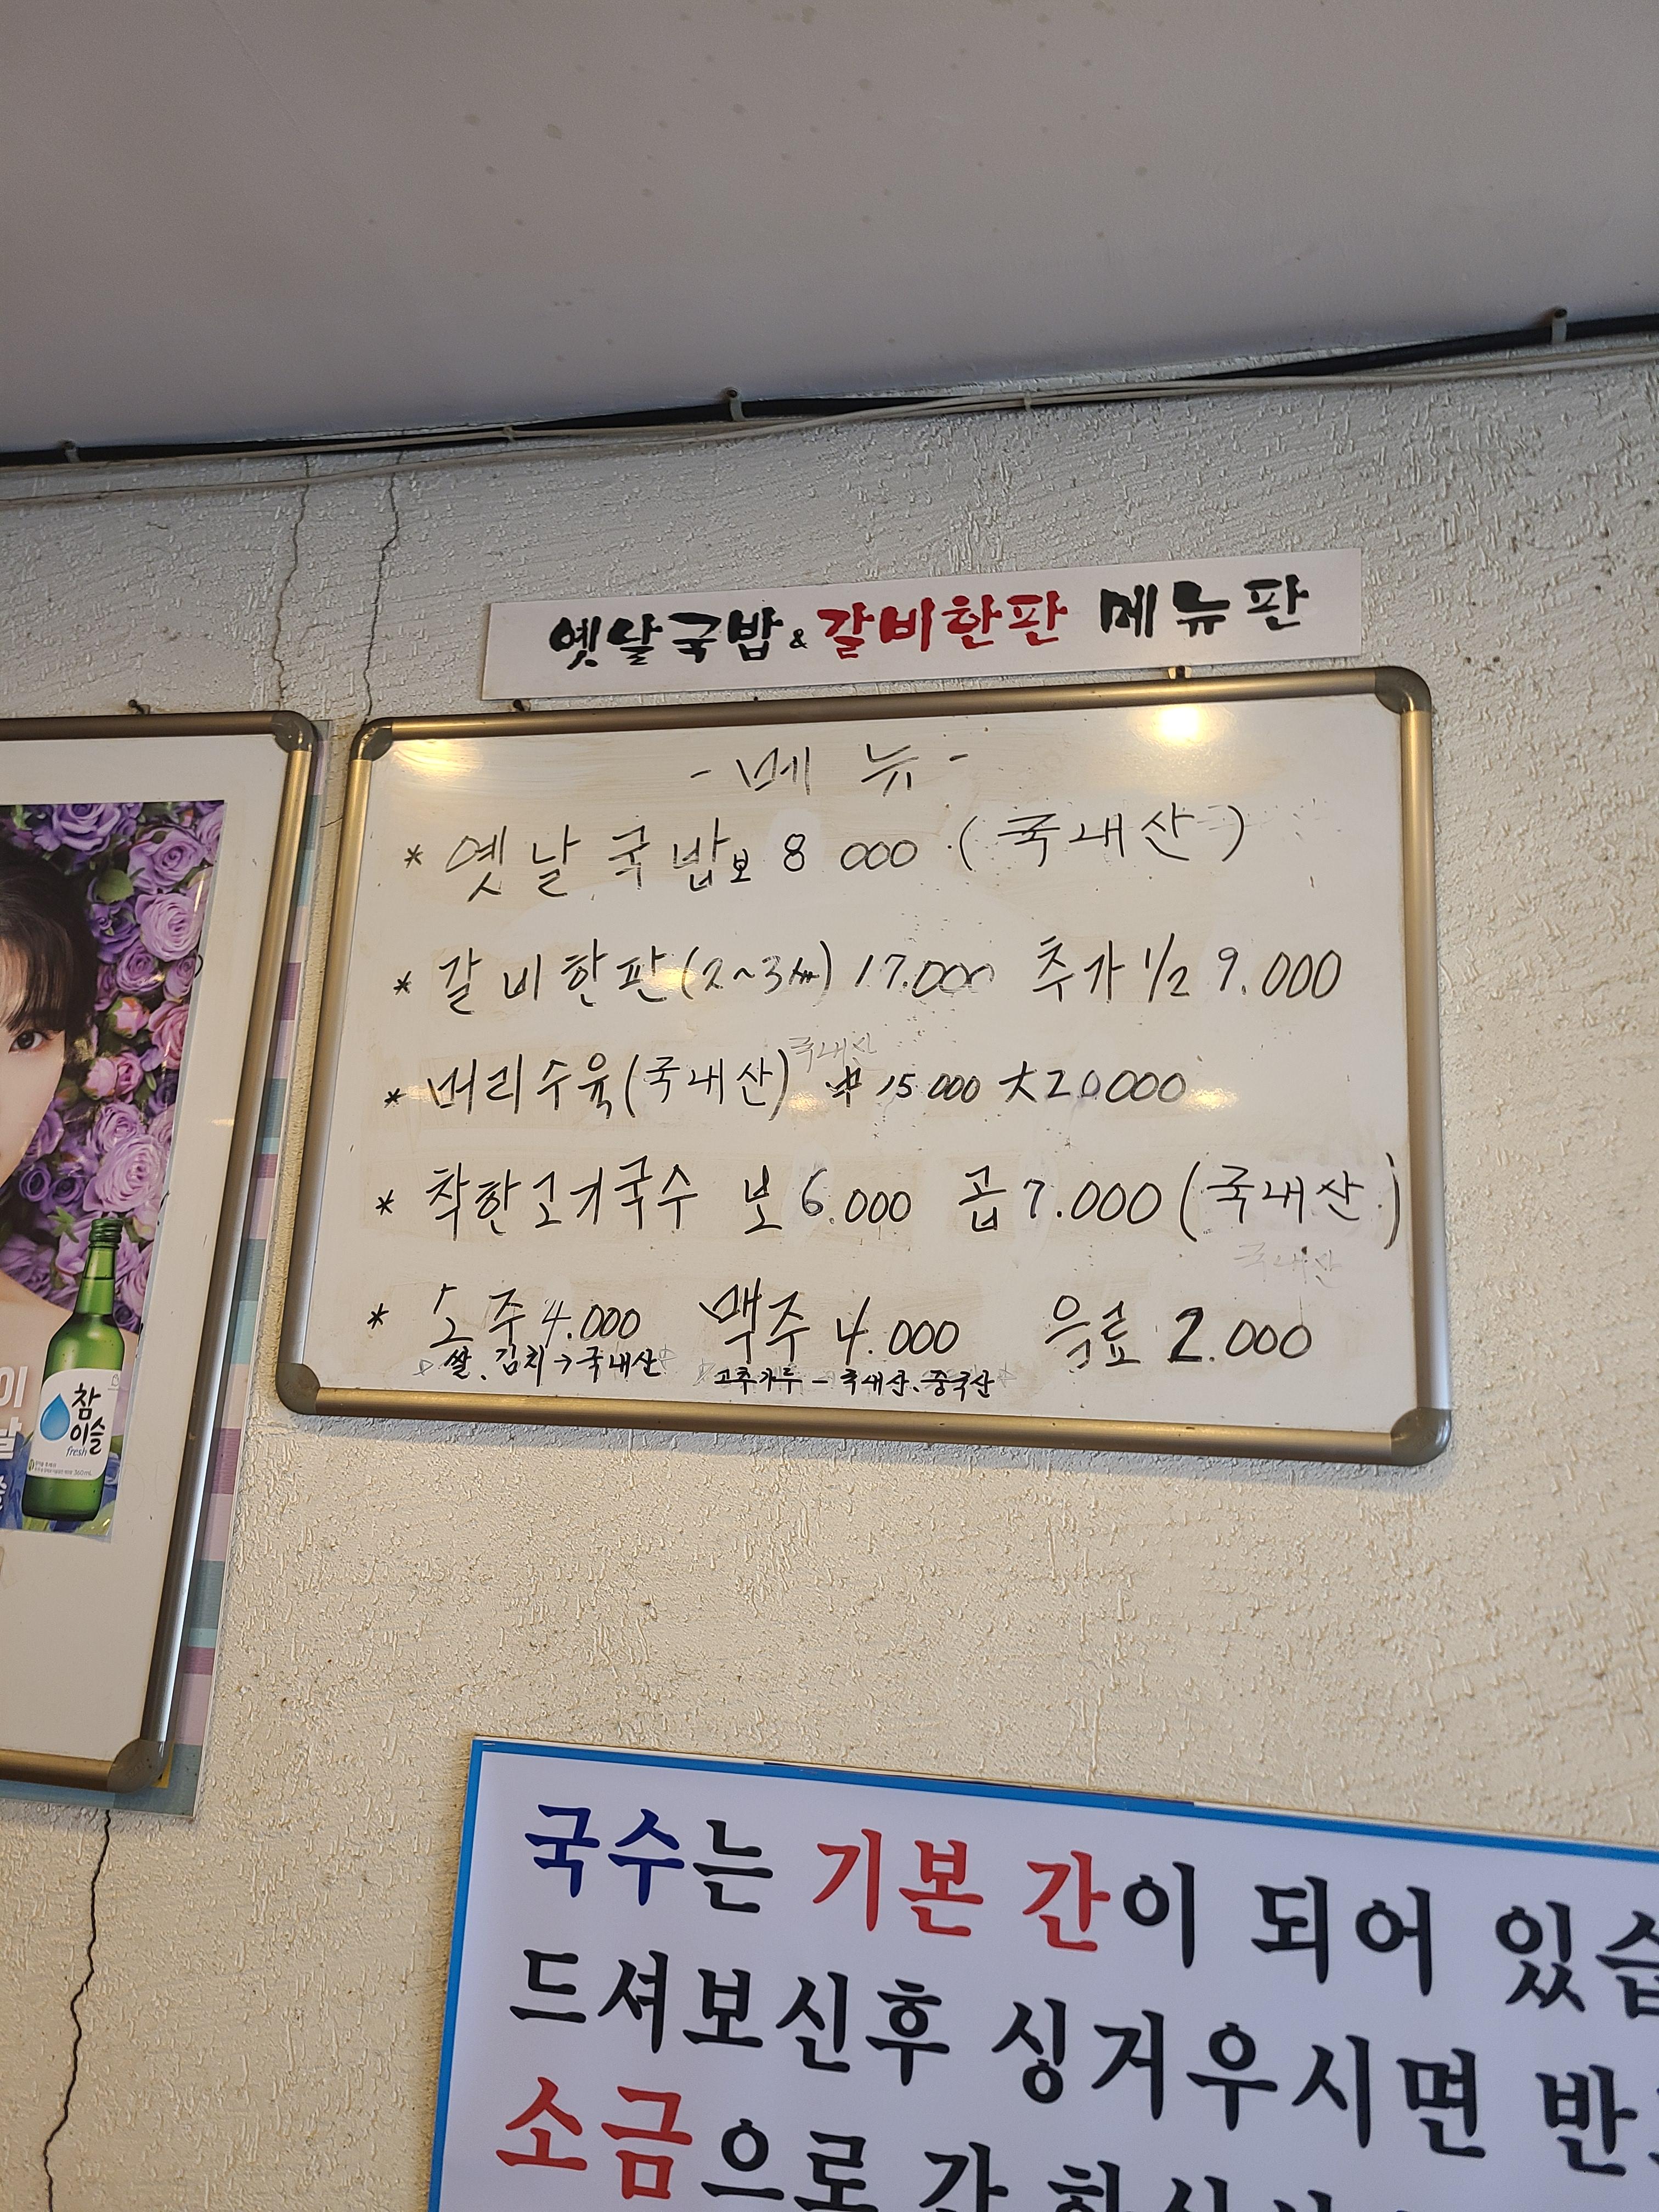 옛날국밥&갈비한판 메뉴판
-메 뉴-
* 옛날국밥 보 8 000 (국내산)
* 갈비한판(2~3人) 17.000 추가 1/2 9.000
국내산
* 머리수육(국내산) 中 15 000 大 20000
* 착한고기국수 보 6.000 곱 7.000 (국내산)
국내산
* 소주 4.000 맥주 4.000 음료 2.000
쌀, 김치→국내산 고추가루 - 국내산, 중국산
참
이슬
fresh
국수는 기본 간이 되어
드셔보신후 싱거우시면
소금으로 간